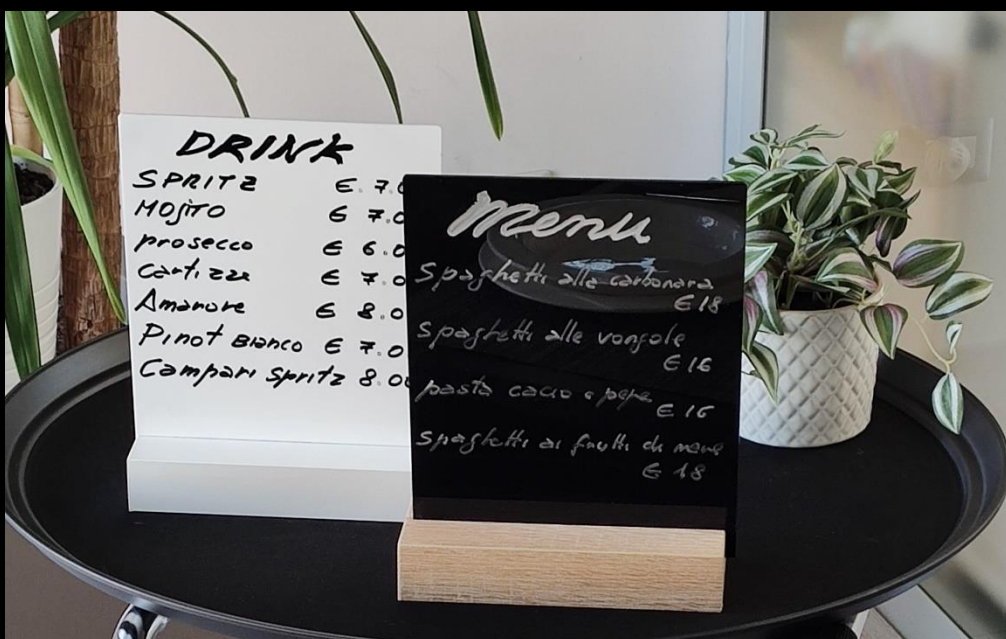 DRINK
SPRITZ € 7.0
MOJITO € 7.0
prosecco € 6.0
Cartizze € 7.0
Amarore € 8.0
Pinot BIANCO € 7.0
Campari Spritz 8.00
Menu
Spaghetti alla carbonara
€ 18
Spaghetti alle vongole
€ 16
pasta cacio e pepe
€ 16
Spaghetti ai frutti di mare
€ 18